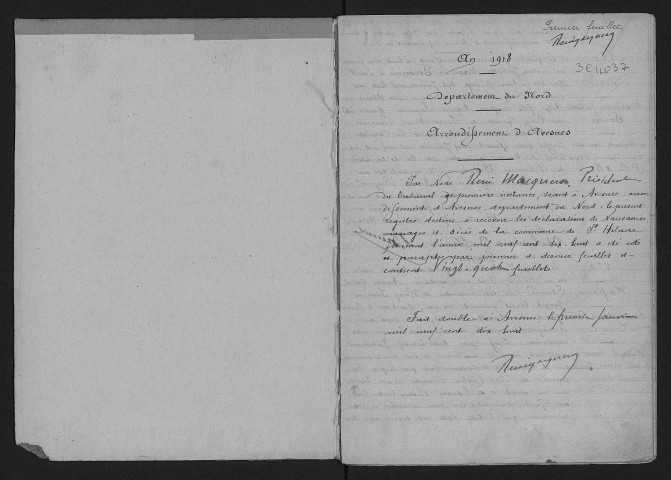 Premier feuillet
3E14037
An 1918
Département du Nord
Arrondissement d'Avesnes
Par Nous René Macqueron, Président
du Tribunal de première instance, séant à Avesnes, arron
dissement d'Avesnes, département du Nord, le présent
registre destiné à recevoir les déclarations de Naissances,
mariages et décès de la commune de St Hilaire
pendant l'année mil neuf cent dix huit a été coté
et paraphé par premier et dernier feuillet et
contient Vingt-quatre feuillets
Fait double à Avesnes le premier janvier
mil neuf cent dix huit